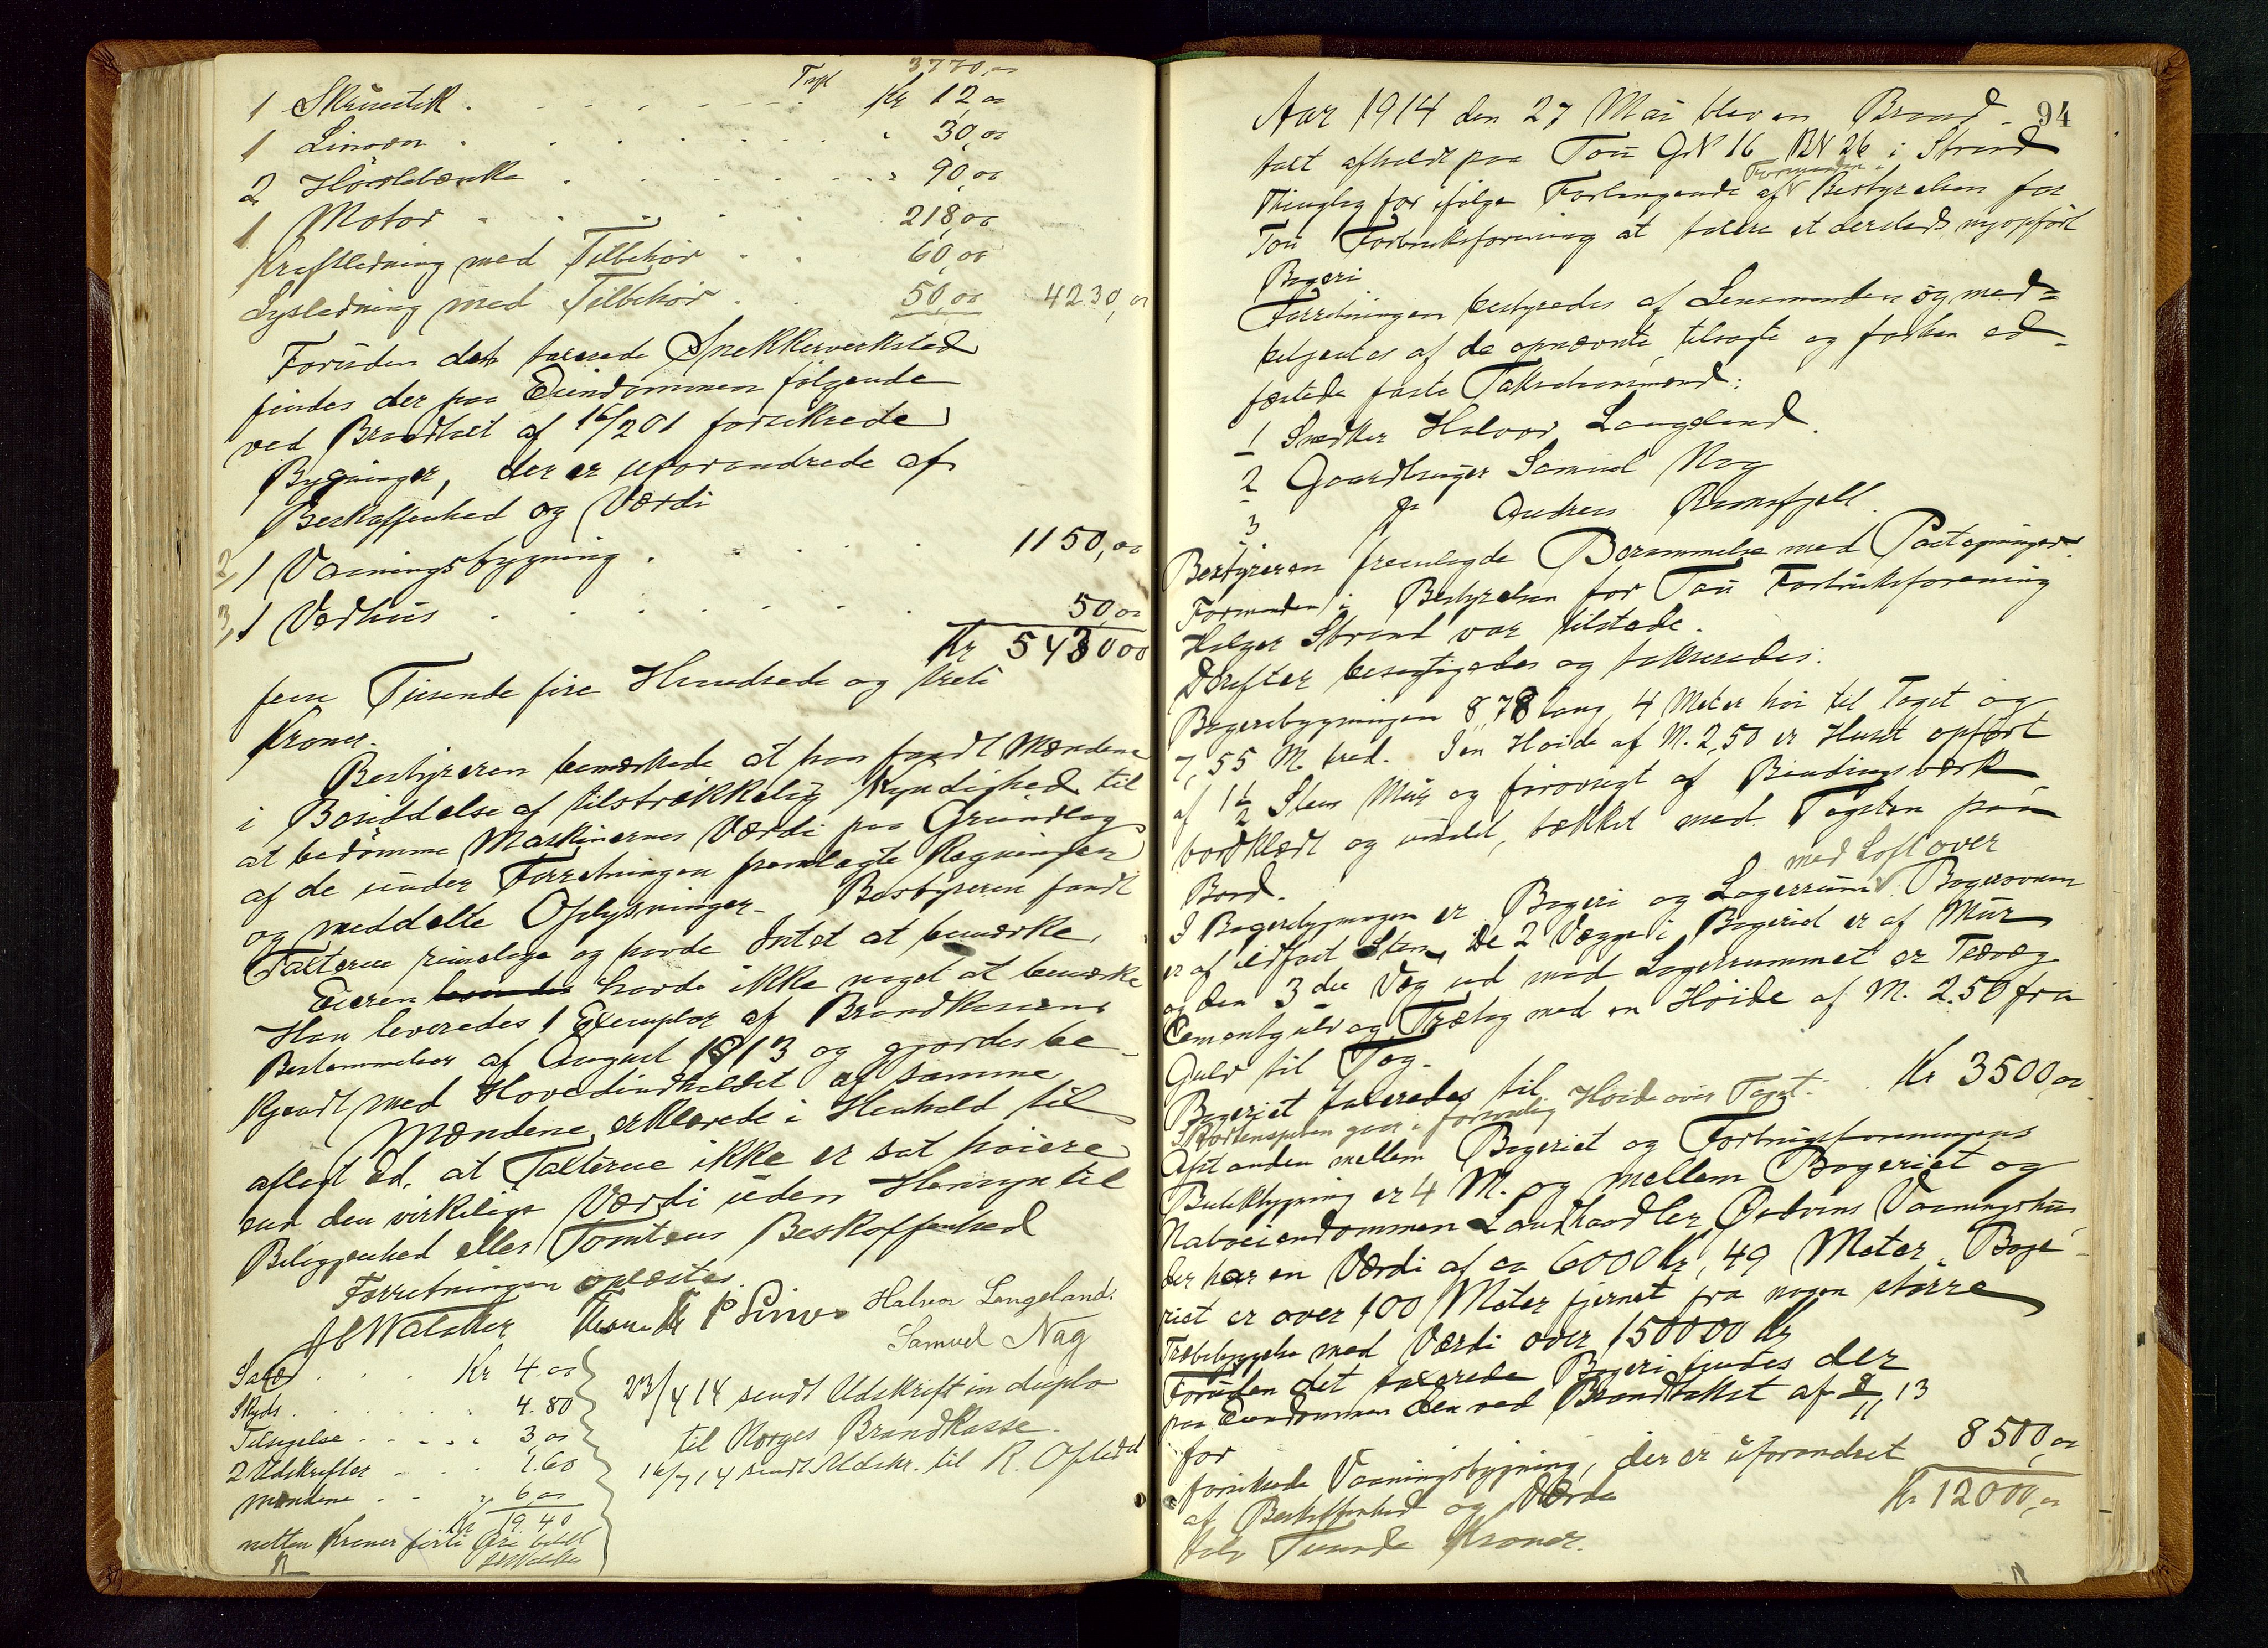 Tspt 3770,00
1 Skruestik . . . Kr 12,00
1 Linovn . . . " 30,00
2 Høvlebænke . . . " 90,00
1 Motor . . . 218,00
Kraftledning med Tilbehør . . 60,00
Lysledning med Tilbehør . . 50,00 4230,00
Foruden det taxerede Snekkerverksted
findes der paa Eiendommen følgende
ved Brandtaxt af 16/2 01 forsikrede
Bygninger, der er uforandrede af
Beskaffenhed og Værdi
2, 1 Vaaningsbygning . . . 1150,00
3, 1 Vedhus . . . 50,00
Kr 5430,00
fem Tusende fire Hundrede og treti
Kroner.
Bestyreren bemærkede at han fandt Mændene
i Besiddelse af tilstrækkelig Kyndighed til
at bedømme Maskinernes Værdi paa Grundlag
af de under Forretningen fremlagte Regninger
og meddelte Oplysninger. Bestyreren fandt
Taxterne rimelige og havde Intet at bemærke.
Eieren havde ikke noget at bemærke
Han leveredes 1 Exemplar af Brandkassens
Bestemmelser af August 1913 og gjordes be-
kjendt med Hovedindholdet af samme
Mændene erklærede i Henhold til
aflagt Ed, at Taxterne ikke er sat høiere
end den virkelige Værdi uden Hensyn til
Beliggenhed eller Tomtens Beskaffenhed
Forretningen oplæstes.
Halvor Langeland.
Samuel Nag
Salær . . . Kr 4.00
Skyds . . . 4.80
Tilsigelse . . . 3,00
2 Udskrifter . . . 1.60
Mændene . . . " 6,00
Kr 19.40
nitten Kroner førti Øre betalt
23/4 14 sendt Udskrift in duplo
til Norges Brandkasse.
16/7 14 sendt Udskr. til R. Oftedal
94
Aar 1914 den 27 Mai blev en Brand-
taxt afholdt paa Tou GN 16 BN 26 i Strand
Thinglag for ifølge Forlangende af Formanden i Bestyrelsen for
Tou Forbruksforening at taxere et dersteds nyopført
Bageri
Forretningen bestyredes af Lensmanden og med-
betjentes af de opnævnte, tilsagte og forhen ed-
fæstede faste Takstmænd:
1 Snedker Halvor Langeland.
2 Gaardbruger Samuel Nag
3 Do Andreas Ramsfjell.
Bestyreren fremlagde Berammelse med Paategninger.
Formanden i Bestyrelsen for Tou Forbruksforening
Holger Strand var tilstede.
Derefter besigtigedes og takseredes:
Bageribygningen 8,78 lang, 4 Meter høi til Taget og
7,55 M. bred. I en Høide af M. 2,50 er Huset opført
af 1½ Stens Mur og forøvrigt af Bindingsværk
bordklædt og malet, tækket med Tagsten paa
Bord.
I Bageribygningen er Bageri og Lagerrum med Loft over. Bagerovnen
er af ildfast Sten, De 2 Vægge i Bageriet er af Mur
og den 3die Væg ud mod Lagerrummet er Trævæg.
Cementgulv og Trætag med en Høide af M. 2.50 fra
Gulv til Tag.
Bageriet taxeredes til . . Kr 3500,00
Skorstenspiben gaar i forsvarlig Høide over Taget.
Afstanden mellem Bageriet og Forbrugsforeningens
Butikbygning er 4 M. og mellem Bageriet og
Naboeiendommen Landhandler Østvins Vaaningshus,
der har en Værdi af ca 6000 Kr, 49 Meter. Bage-
riet er over 100 Meter fjernet fra nogen større
Træbebyggelse med Værdi over 150000 Kr
Foruden det taxerede Bageri findes der
paa Eiendommen den ved Brandtakst af 8/11 13
for
forsikrede Vaaningsbygning, der er uforandret 8500,00
af Beskaffenhed og Værdi Kr 12000,00
tolv Tusende Kroner.